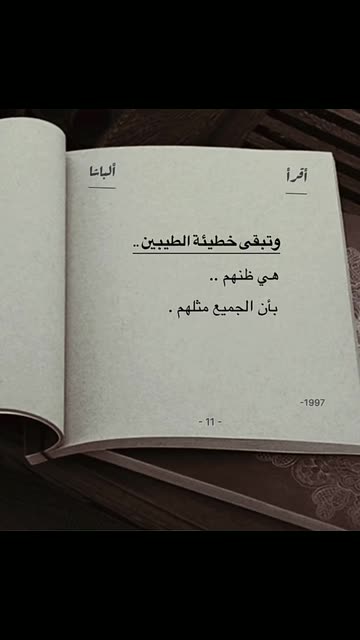 أقرأ
ألباشا
وتبقى خطيئة الطيبين ..
هي ظنهم ..
بأن الجميع مثلهم .
1997-
- 11 -